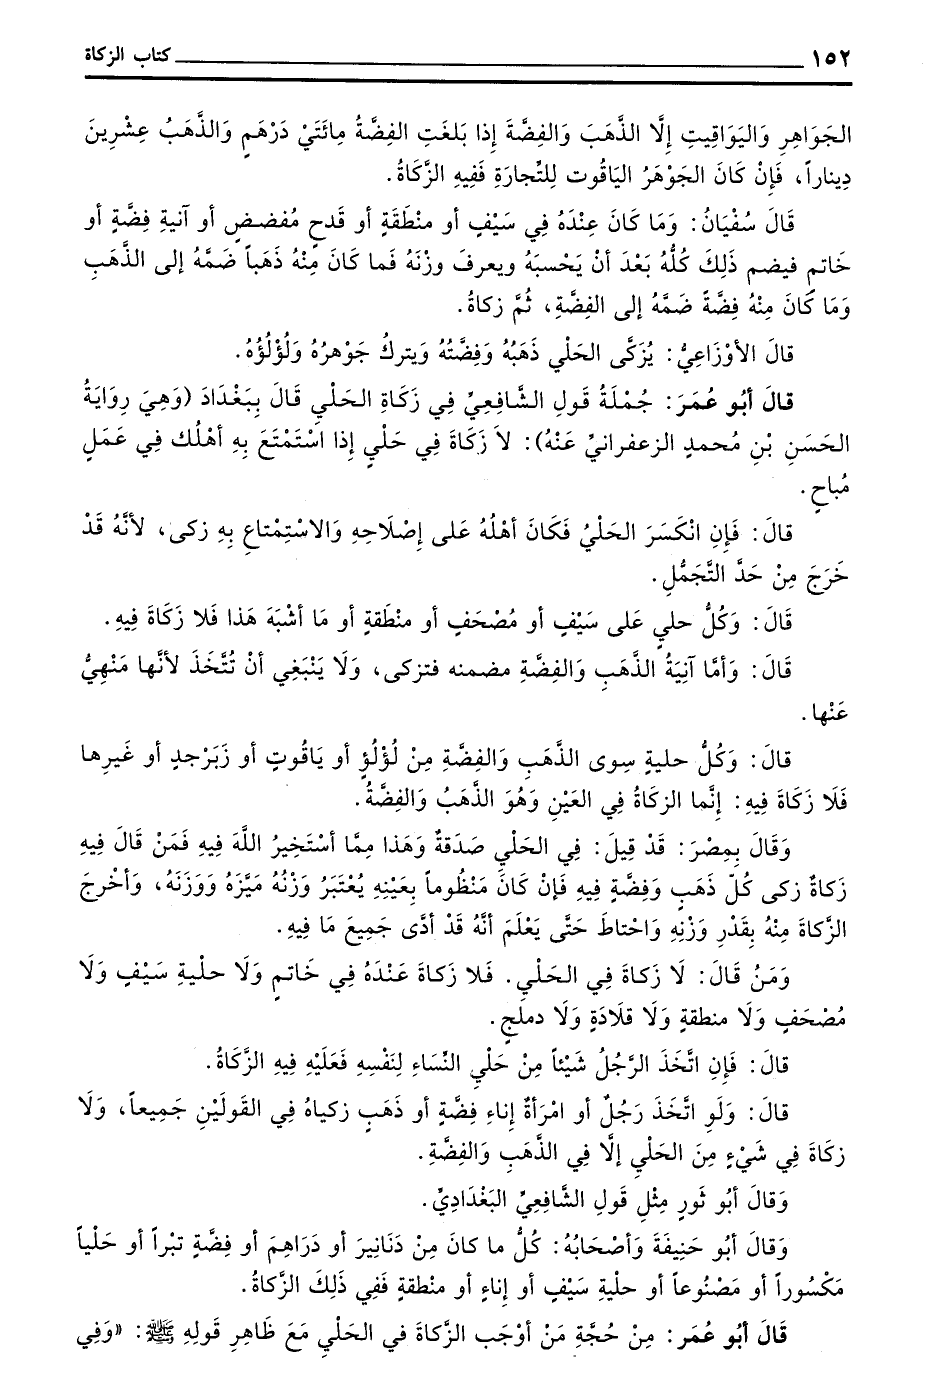 ١٥٢ كتاب الزكاة
الجَوَاهِرِ وَاليَوَاقِيتِ إِلَّا الذَّهَبَ وَالفِضَّةَ إِذا بَلغَتِ الفِضَّةُ مِائَتَيْ دَرْهَمٍ وَالذَّهَبُ عِشْرِينَ
دِيناراً، فَإِنْ كَانَ الجَوْهَرُ اليَاقُوت لِلتِّجارَةِ فَفِيهِ الزَّكَاةُ.
قَالَ سُفْيَانُ: وَمَا كَانَ عِنْدَهُ فِي سَيْفٍ أو منْطَقَةٍ أو قَدحٍ مُفضضٍ أو آنيةِ فِضَّةٍ أو
خَاتمٍ فيضم ذَلِكَ كلُّهُ بَعْدَ أنْ يَحْسبَهُ ويعرفَ وزْنَهُ فَما كَانَ مِنْهُ ذَهَباً ضَمَّهُ إلى الذَّهَبِ
وَمَا كَانَ مِنْهُ فِضَّةً ضَمَّهُ إلى الفِضَّةِ، ثُمَّ زكاهُ.
قالَ الأوْزَاعِيُّ: يُزَكَّى الحَلْي ذَهَبُهُ وَفِضَّتُهُ وَيتركُ جَوْهرُهُ وَلُؤْلُؤُهُ.
قالَ أبُو عُمَرَ: جُمْلَةُ قَولِ الشَّافعِيِّ فِي زَكَاةِ الحَلْيِ قَالَ بِبَغْدَادَ (وَهِيَ رِوَايَةُ
الحَسَنِ بْنِ مُحمدٍ الزعفرانيِّ عَنْهُ): لاَ زَكَاةَ فِي حَلْيٍ إذا اسْتَمْتَعَ بِهِ أهْلُك فِي عَمَلٍ
مُباحٍ.
قالَ: فَإِنِ انْكَسَرَ الحَلْيُ فَكَانَ أهْلُهُ عَلى إِصْلَاحِهِ وَالاسْتِمْتاعِ بِهِ زكى، لأنَّهُ قَدْ
خَرَجَ مِنْ حَدِّ التَّجَمُّلِ.
قَالَ: وَكُلُّ حليٍ عَلى سَيْفٍ أو مُصْحَفٍ أو منْطَقةٍ أو مَا أشْبَهَ هَذا فَلا زَكَاةَ فِيهِ.
قَالَ: وَأمَّا آنِيَةُ الذَّهَبِ وَالفِضَّةِ مضمنه فتزكى، وَلَا يَنْبَغِي أنْ تُتَّخَذَ لأنَّها مَنْهِيٌّ
عَنْها.
قالَ: وَكُلُّ حليةٍ سِوى الذَّهَبِ وَالفِضَّةِ مِنْ لُؤْلُؤٍ أو يَاقُوتٍ أو زَبَرْجدٍ أو غَيرِها
فَلَا زَكَاةَ فِيهِ: إِنَّما الزكَاةُ فِي العَيْنِ وَهُوَ الذَّهَبُ وَالفِضَّةُ.
وَقَالَ بِمِصْرَ: قَدْ قِيلَ: فِي الحَلْيِ صَدَقةٌ وَهَذا مِمَّا أسْتَخِيرُ اللَّهَ فِيهِ فَمَنْ قالَ فِيهِ
زَكاةٌ زكى كُلّ ذَهَبٍ وَفِضَّةٍ فِيهِ فَإِنْ كَانَ مَنْظُوماً بِعَيْنِهِ يُعْتَبَرُ وَزْنُهُ مَيَّزَهُ وَوَزَنَهُ، وَأخْرجَ
الزَّكَاةَ مِنْهُ بِقَدْرِ وَزْنِهِ وَاحْتاطَ حَتَّى يَعْلَمَ أنَّهُ قَدْ أدَّى جَمِيعَ مَا فِيهِ.
وَمَنْ قَالَ: لَا زَكَاةَ فِي الحَلْي. فَلا زَكاةَ عَنْدَهُ فِي خَاتمٍ وَلَا حلْيةِ سَيْفٍ وَلَا
مُصْحَفٍ وَلَا منطقةٍ وَلَا قلَادَةٍ وَلَا دملجٍ.
قالَ: فَإِنِ اتَّخَذَ الرَّجُلُ شَيْئاً مِنْ حَلْيِ النِّسَاءِ لِنَفْسِهِ فَعَلَيْهِ فِيهِ الزَّكَاةُ.
قَالَ: وَلَوِ اتَّخَذَ رَجُلٌ أو امْرَأةٌ إناءِ فِضَّةٍ أو ذَهَبٍ زكياهُ فِي القَولَيْنِ جَمِيعاً، وَلَا
زكَاةَ فِي شَيْءٍ مِنَ الحَلْيِ إلَّا فِي الذَّهَبِ وَالفِضَّةِ.
وَقالَ أبُو ثَورٍ مِثْلِ قَولِ الشَّافعِيِّ البَغْدَادِيِّ.
وَقالَ أبُو حَنِيفَةَ وَأصْحَابُهُ: كُلُّ ما كانَ مِنْ دَنَانِيرَ أو دَرَاهِمَ أو فِضَّةٍ تبْراً أو حَلْياً
مَكْسُوراً أو مَصْنُوعاً أو حليْةِ سَيْفٍ أو إناءٍ أو منْطقةٍ فَفِي ذَلِكَ الزَّكاةُ.
قَالَ أبُو عُمَر: مِنْ حُجَّةِ مَنْ أوْجَب الزَّكاةَ في الحَلْيِ مَعَ ظَاهِرِ قَولِهِ ﷺ: «وَفِي